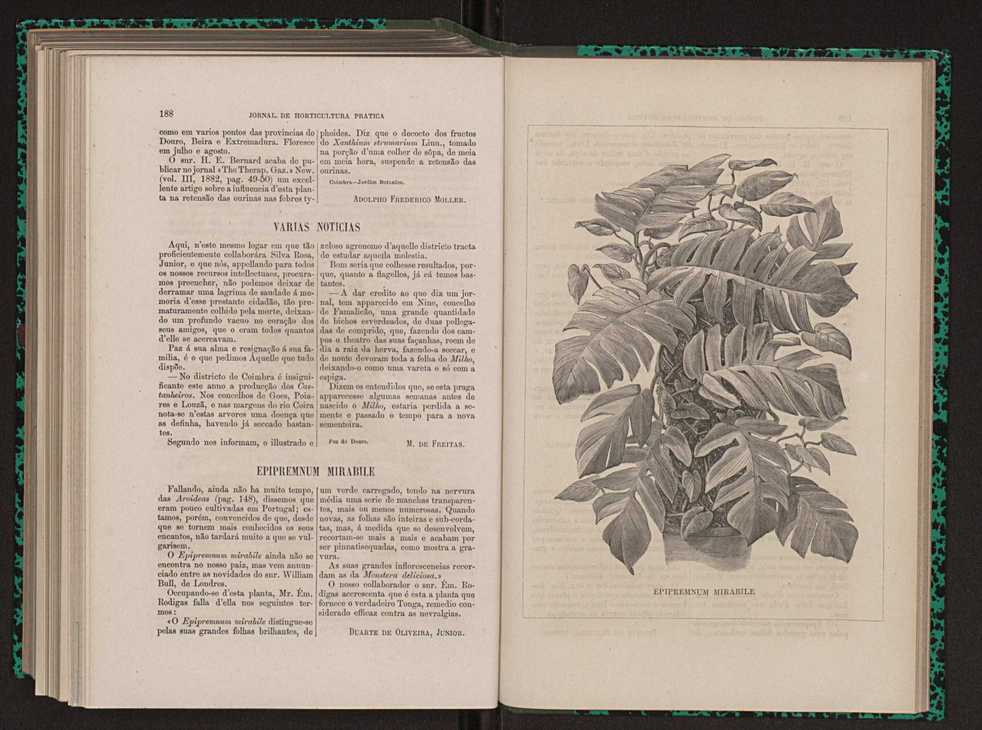 188
JORNAL DE HORTICULTURA PRATICA
como em varios pontos das provincias do
Douro, Beira e Extremadura. Floresce
em julho e agosto.
O snr. H. E. Bernard acaba de pu-
blicar no jornal «The Therap. Gaz.» New.
(vol. III, 1882, pag. 49-50) um excel-
lente artigo sobre a influencia d'esta plan-
ta na retensão das ourinas nas febres ty-
phoides. Diz que o decocto dos fructos
do Xanthium strumarium Linn., tomado
na porção d'uma colher de sôpa, de meia
em meia hora, suspende a retensão das
ourinas.
Coimbra—Jardim Botanico.
ADOLPHO FREDERICO MOLLER.
VARIAS NOTICIAS
Aqui, n'este mesmo logar em que tão
proficientemente collaborára Silva Rosa,
Junior, e que nós, appellando para todos
os nossos recursos intellectuaes, procura-
mos preencher, não podemos deixar de
derramar uma lagrima de saudade á me-
moria d'esse prestante cidadão, tão pre-
maturamente colhido pela morte, deixan-
do um profundo vacuo no coração dos
seus amigos, que o eram todos quantos
d'elle se acercavam.
Paz á sua alma e resignação á sua fa-
milia, é o que pedimos Áquelle que tudo
dispõe.
— No districto de Coimbra é insigni-
ficante este anno a producção dos Cas-
tanheiros. Nos concelhos de Goes, Poia-
res e Louzã, e nas margens do rio Ceira
nota-se n'estas arvores uma doença que
as definha, havendo já seccado bastan-
tes.
Segundo nos informam, o illustrado e
zeloso agronomo d'aquelle districto tracta
de estudar aquella molestia.
Bom seria que colhesse resultados, por-
que, quanto a flagellos, já cá temos bas-
tantes.
— A dar credito ao que diz um jor-
nal, tem apparecido em Nine, concelho
de Famalicão, uma grande quantidade
de bichos esverdeados, de duas pollega-
das de comprido, que, fazendo dos cam-
pos o theatro das suas façanhas, roem de
dia a raiz da herva, fazendo-a seccar, e
de noute devoram toda a folha do Milho,
deixando-o como uma vareta e só com a
espiga.
Dizem os entendidos que, se esta praga
apparecesse algumas semanas antes de
nascido o Milho, estaria perdida a se-
mente e passado o tempo para a nova
sementeira.
Foz do Douro.
M. DE FREITAS.
EPIPREMNUM MIRABILE
Fallando, ainda não ha muito tempo,
das Aroideas (pag. 148), dissemos que
eram pouco cultivadas em Portugal; es-
tamos, porém, convencidos de que, desde
que se tornem mais conhecidos os seus
encantos, não tardará muito a que se vul-
garisem.
O Epipremnum mirabile ainda não se
encontra no nosso paiz, mas vem annun-
ciado entre as novidades do snr. William
Bull, de Londres.
Occupando-se d'esta planta, Mr. Ém.
Rodigas falla d'ella nos seguintes ter-
mos:
«O Epipremnum mirabile distingue-se
pelas suas grandes folhas brilhantes, de
um verde carregado, tendo na nervura
média uma serie de manchas transparen-
tes, mais ou menos numerosas. Quando
novas, as folhas são inteiras e sub-corda-
tas, mas, á medida que se desenvolvem,
recortam-se mais a mais e acabam por
ser pinnatisequadas, como mostra a gra-
vura.
As suas grandes inflorescencias recor-
dam as da Monstera deliciosa.»
O nosso collaborador o snr. Ém. Ro-
digas accrescenta que é esta a planta que
fornece o verdadeiro Tonga, remedio con-
siderado efficaz contra as nevralgias.
DUARTE DE OLIVEIRA, JUNIOR.
EPIPREMNUM MIRABILE